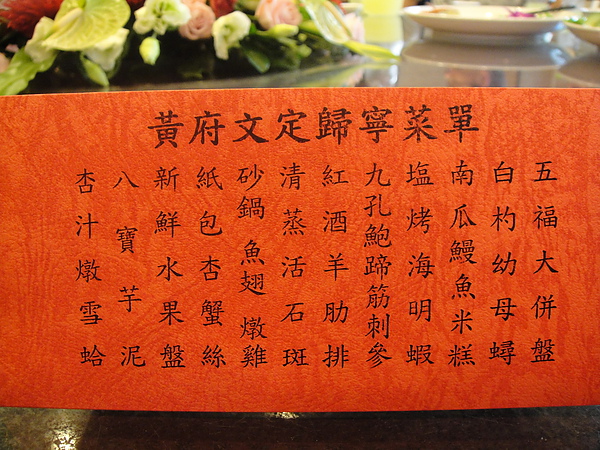 黃府文定歸寧菜單
五福大併盤
白灼幼母蟳
南瓜鰻魚米糕
塩烤海明蝦
九孔鮑蹄筋刺參
紅酒羊肋排
清蒸活石斑
砂鍋魚翅燉雞
紙包杏蟹絲
新鮮水果盤
八寶芋泥
杏汁燉雪蛤